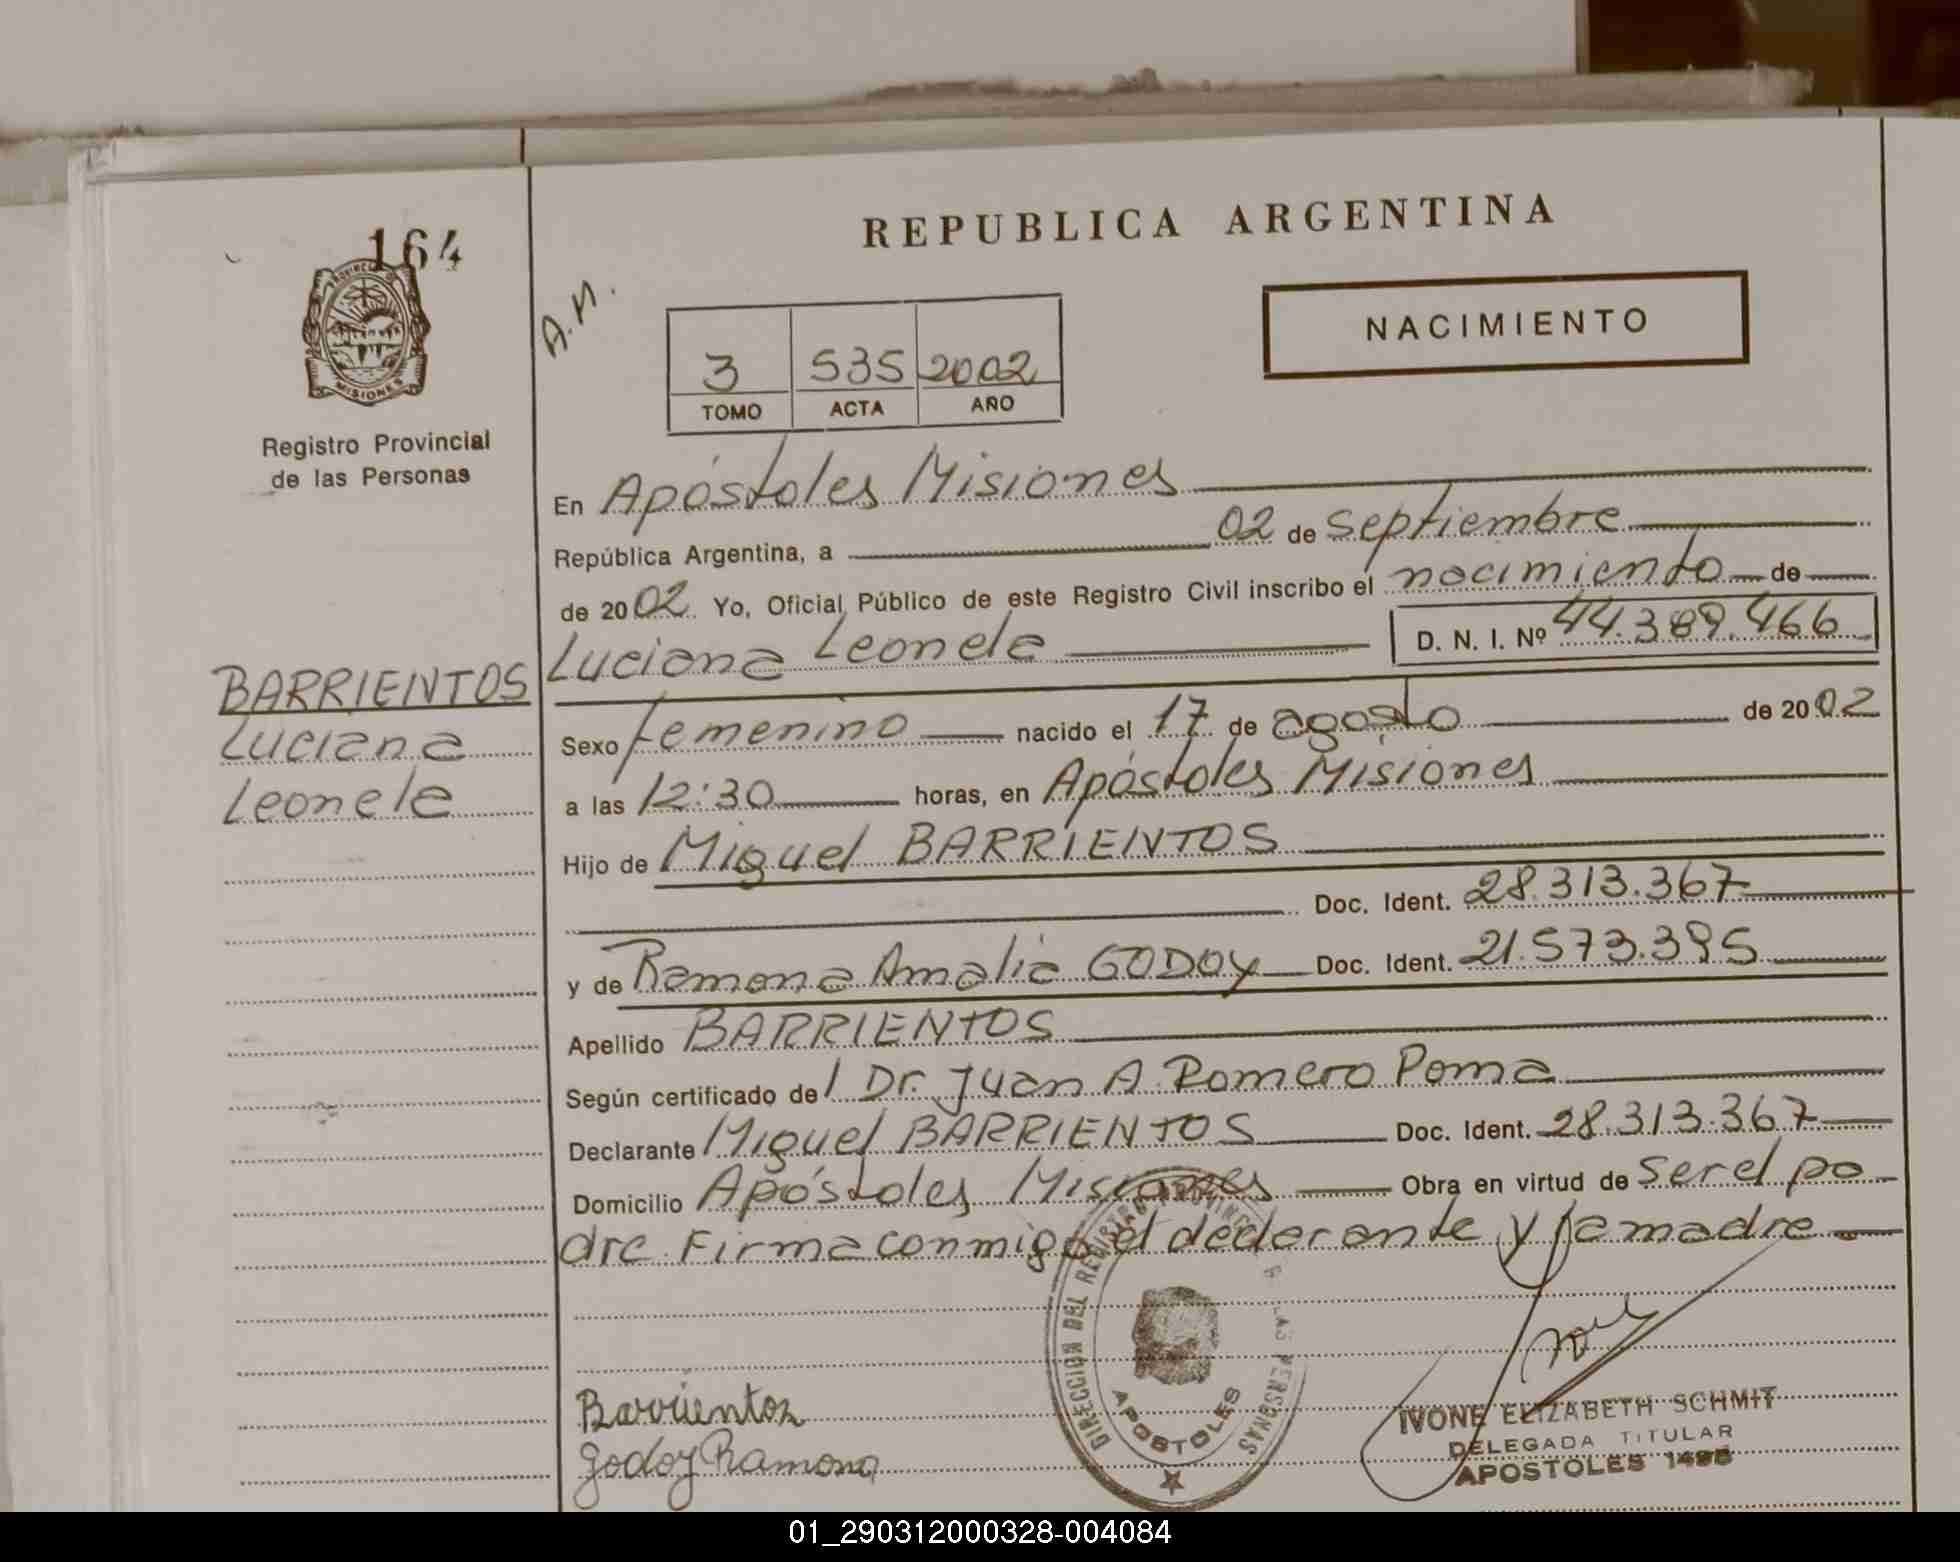 164
PROVINCIA DE
MISIONES
Registro Provincial
de las Personas
A.M.
REPUBLICA ARGENTINA
NACIMIENTO
3 535 2002
TOMO ACTA AÑO
En Apóstoles Misiones
República Argentina, a 02 de septiembre
de 2002. Yo, Oficial Público de este Registro Civil inscribo el nacimiento de
Luciana Leonela D. N. I. Nº 44.389.466
BARRIENTOS
Luciana
Leonela
Sexo femenino nacido el 17 de agosto de 2002
a las 12:30 horas, en Apóstoles Misiones
Hijo de Miguel BARRIENTOS
Doc. Ident. 28.313.367
y de Ramona Amalia GODOY Doc. Ident. 21.573.395
Apellido BARRIENTOS
Según certificado del Dr. Juan A. Romero Poma
Declarante Miguel BARRIENTOS Doc. Ident. 28.313.367
Domicilio Apóstoles Misiones Obra en virtud de ser el pa
dre. Firma conmigo el declarante y la madre
DIRECCION DEL REGISTRO PROVINCIAL DE LAS PERSONAS
APOSTOLES
Barrientos
Godoy Ramona
IVONE ELIZABETH SCHMIT
DELEGADA TITULAR
APOSTOLES
01_290312000328-004084